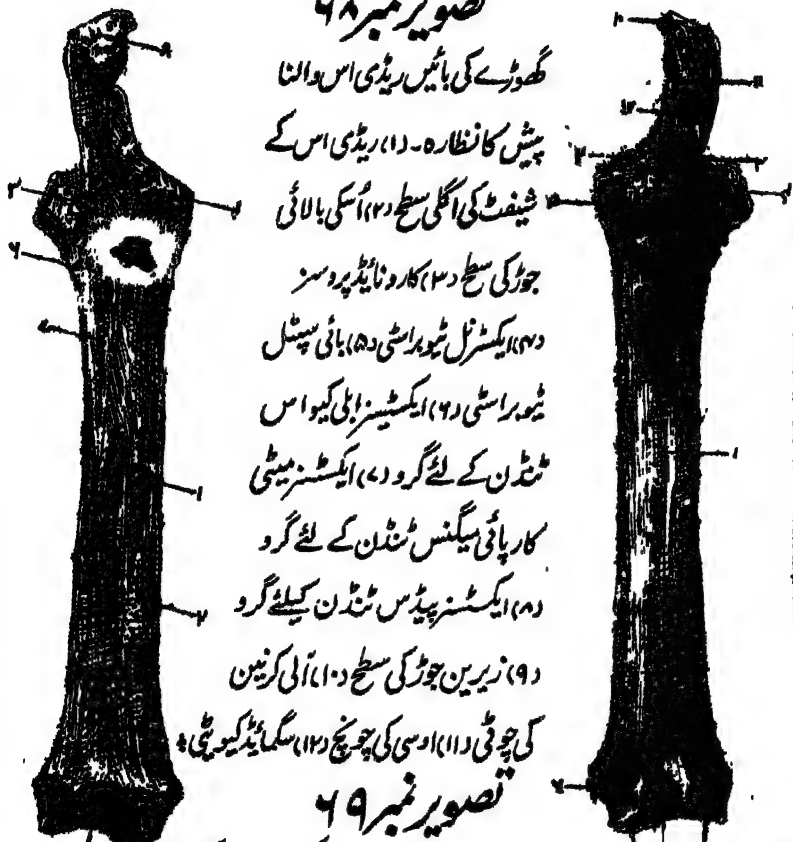 تصویر نمبر ۶۸
گھوڑے کی بائیں ریڈی اس والنا
پیش کا نظارہ۔ (۱) ریڈی اس کے
شیفٹ کی اگلی سطح (۲) اُسکی بالائی
جوڑ کی سطح (۳) کارونائیڈ پروسز
(۴) ایکسٹرنل ٹیوبراسٹی (۵) بائی سپٹل
ٹیوبراسٹی (۶) ایکسٹینسز ابلی کیو اس
ٹنڈن کے لئے گرو (۷) ایکسٹنسز میٹی
کارپائی میگنس ٹنڈن کے لئے گرو
(۸) ایکسٹنسز پیڈس ٹنڈن کیلئے گرو
(۹) زیرین جوڑ کی سطح (۱۰) آلی کرنین
کی چوٹی (۱۱) اوسی کی چونچ (۱۲) سگمائیڈ کیویٹی؛
تصویر نمبر ۶۹